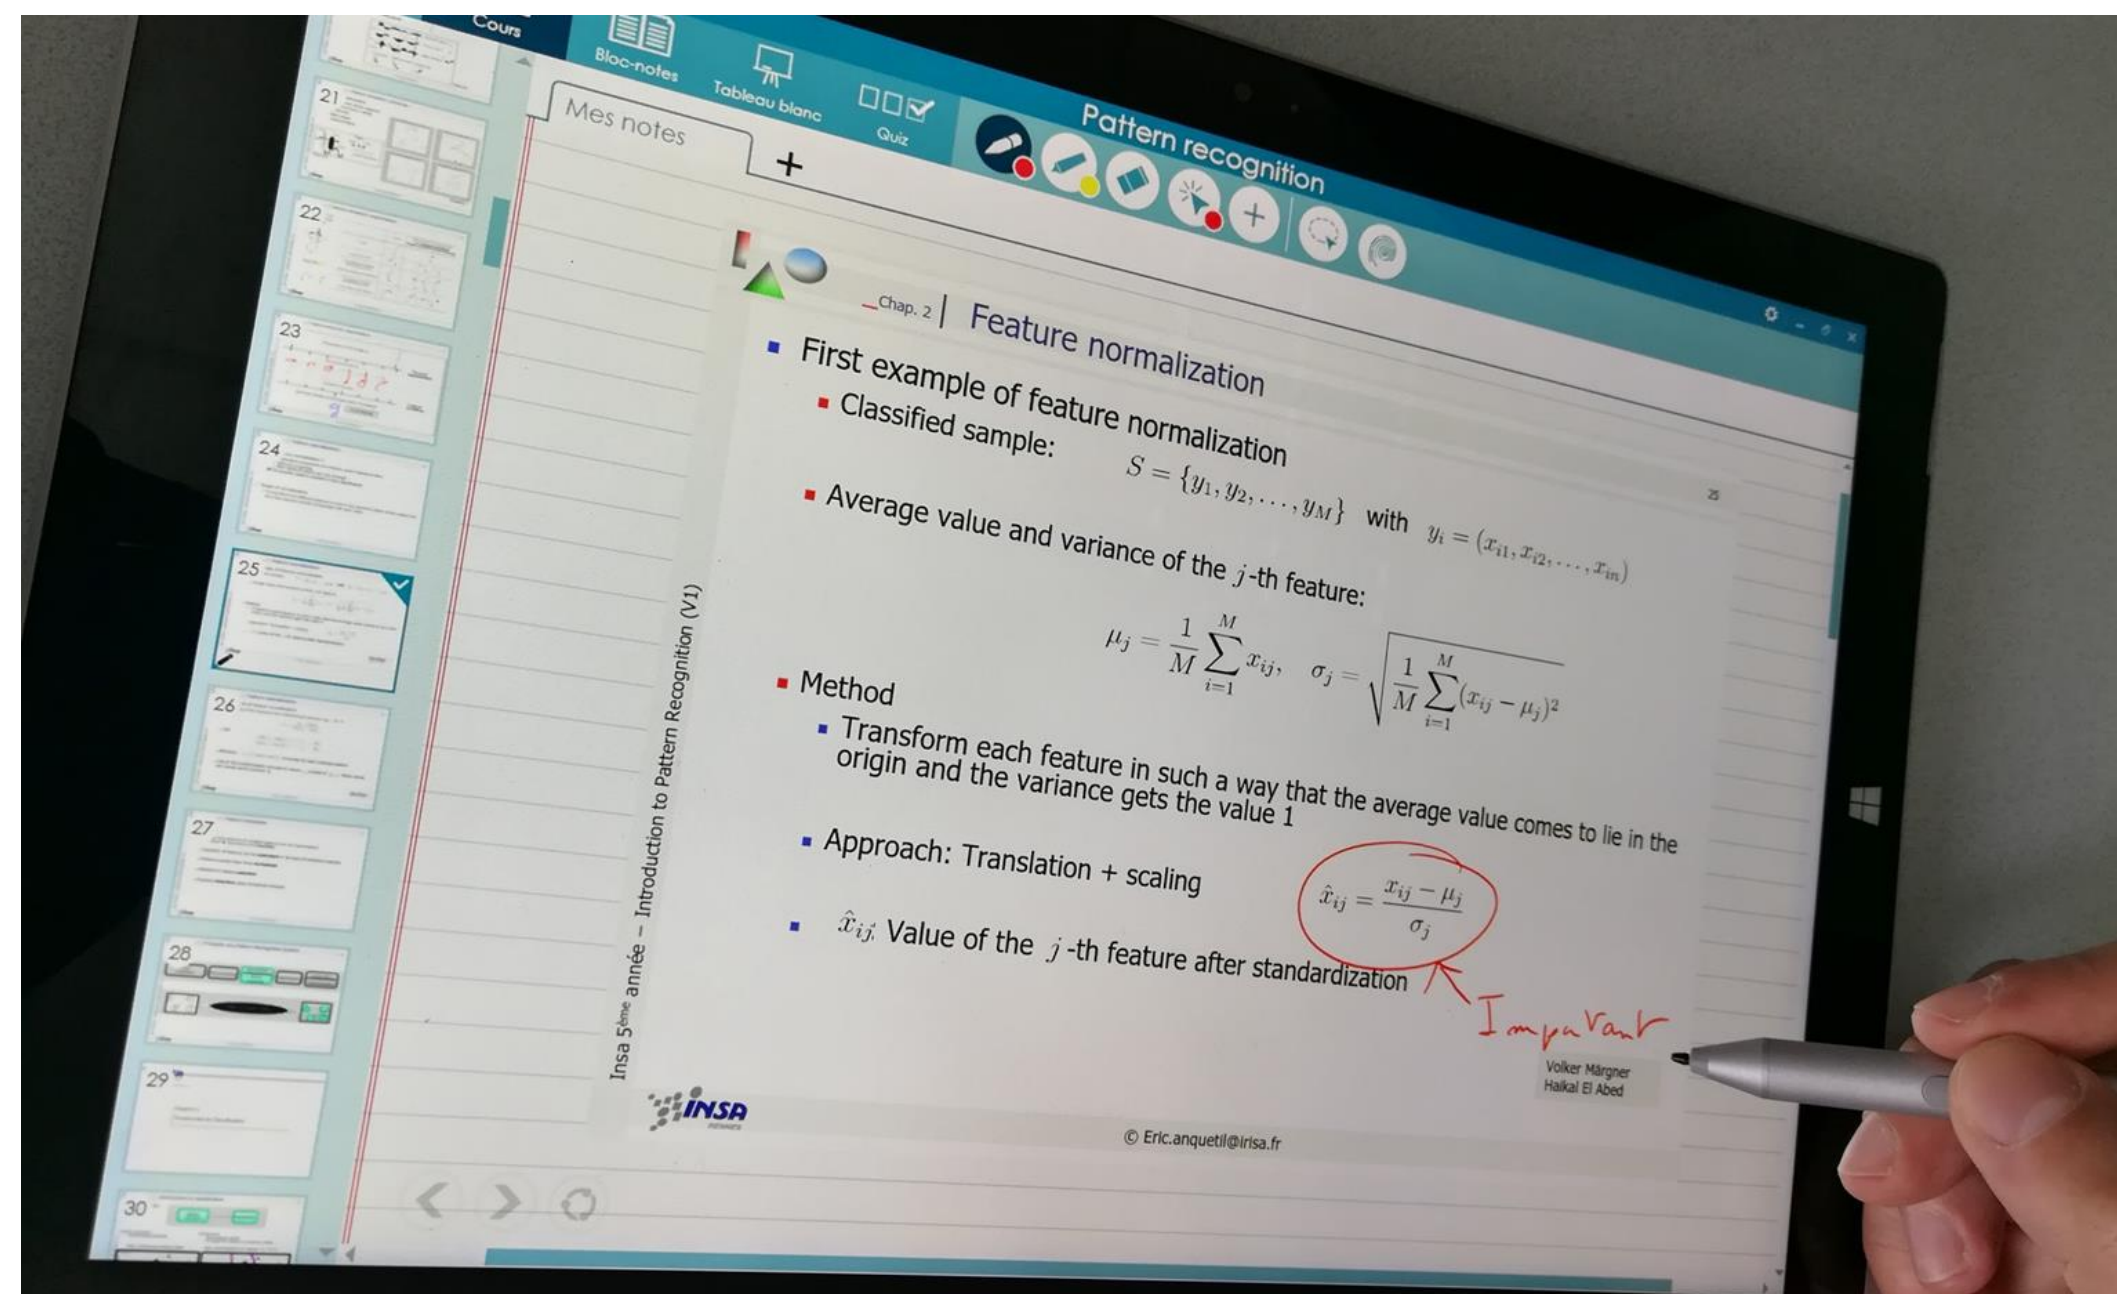 Cours
Bloc-notes
Tableau blanc
Quiz
Pattern recognition
Mes notes
+
21
22
23
24
25
26
27
28
29
30
_Chap. 2 | Feature normalization
25
First example of feature normalization
Classified sample:
S = {y₁, y₂, ..., y_M} with y_i = (x_{i1}, x_{i2}, ..., x_{in})
Average value and variance of the j-th feature:
μ_j = \frac{1}{M} \sum_{i=1}^{M} x_{ij}, σ_j = \sqrt{\frac{1}{M} \sum_{i=1}^{M} (x_{ij} − μ_j)^2}
Method
Transform each feature in such a way that the average value comes to lie in the
origin and the variance gets the value 1
Approach: Translation + scaling
\hat{x}_{ij} = \frac{x_{ij} − μ_j}{σ_j}
\hat{x}_{ij}: Value of the j-th feature after standardization
Important
Volker Märgner
Haikal El Abed
Insa 5ème année – Introduction to Pattern Recognition (V1)
INSA
RENNES
© Eric.anquetil@irisa.fr